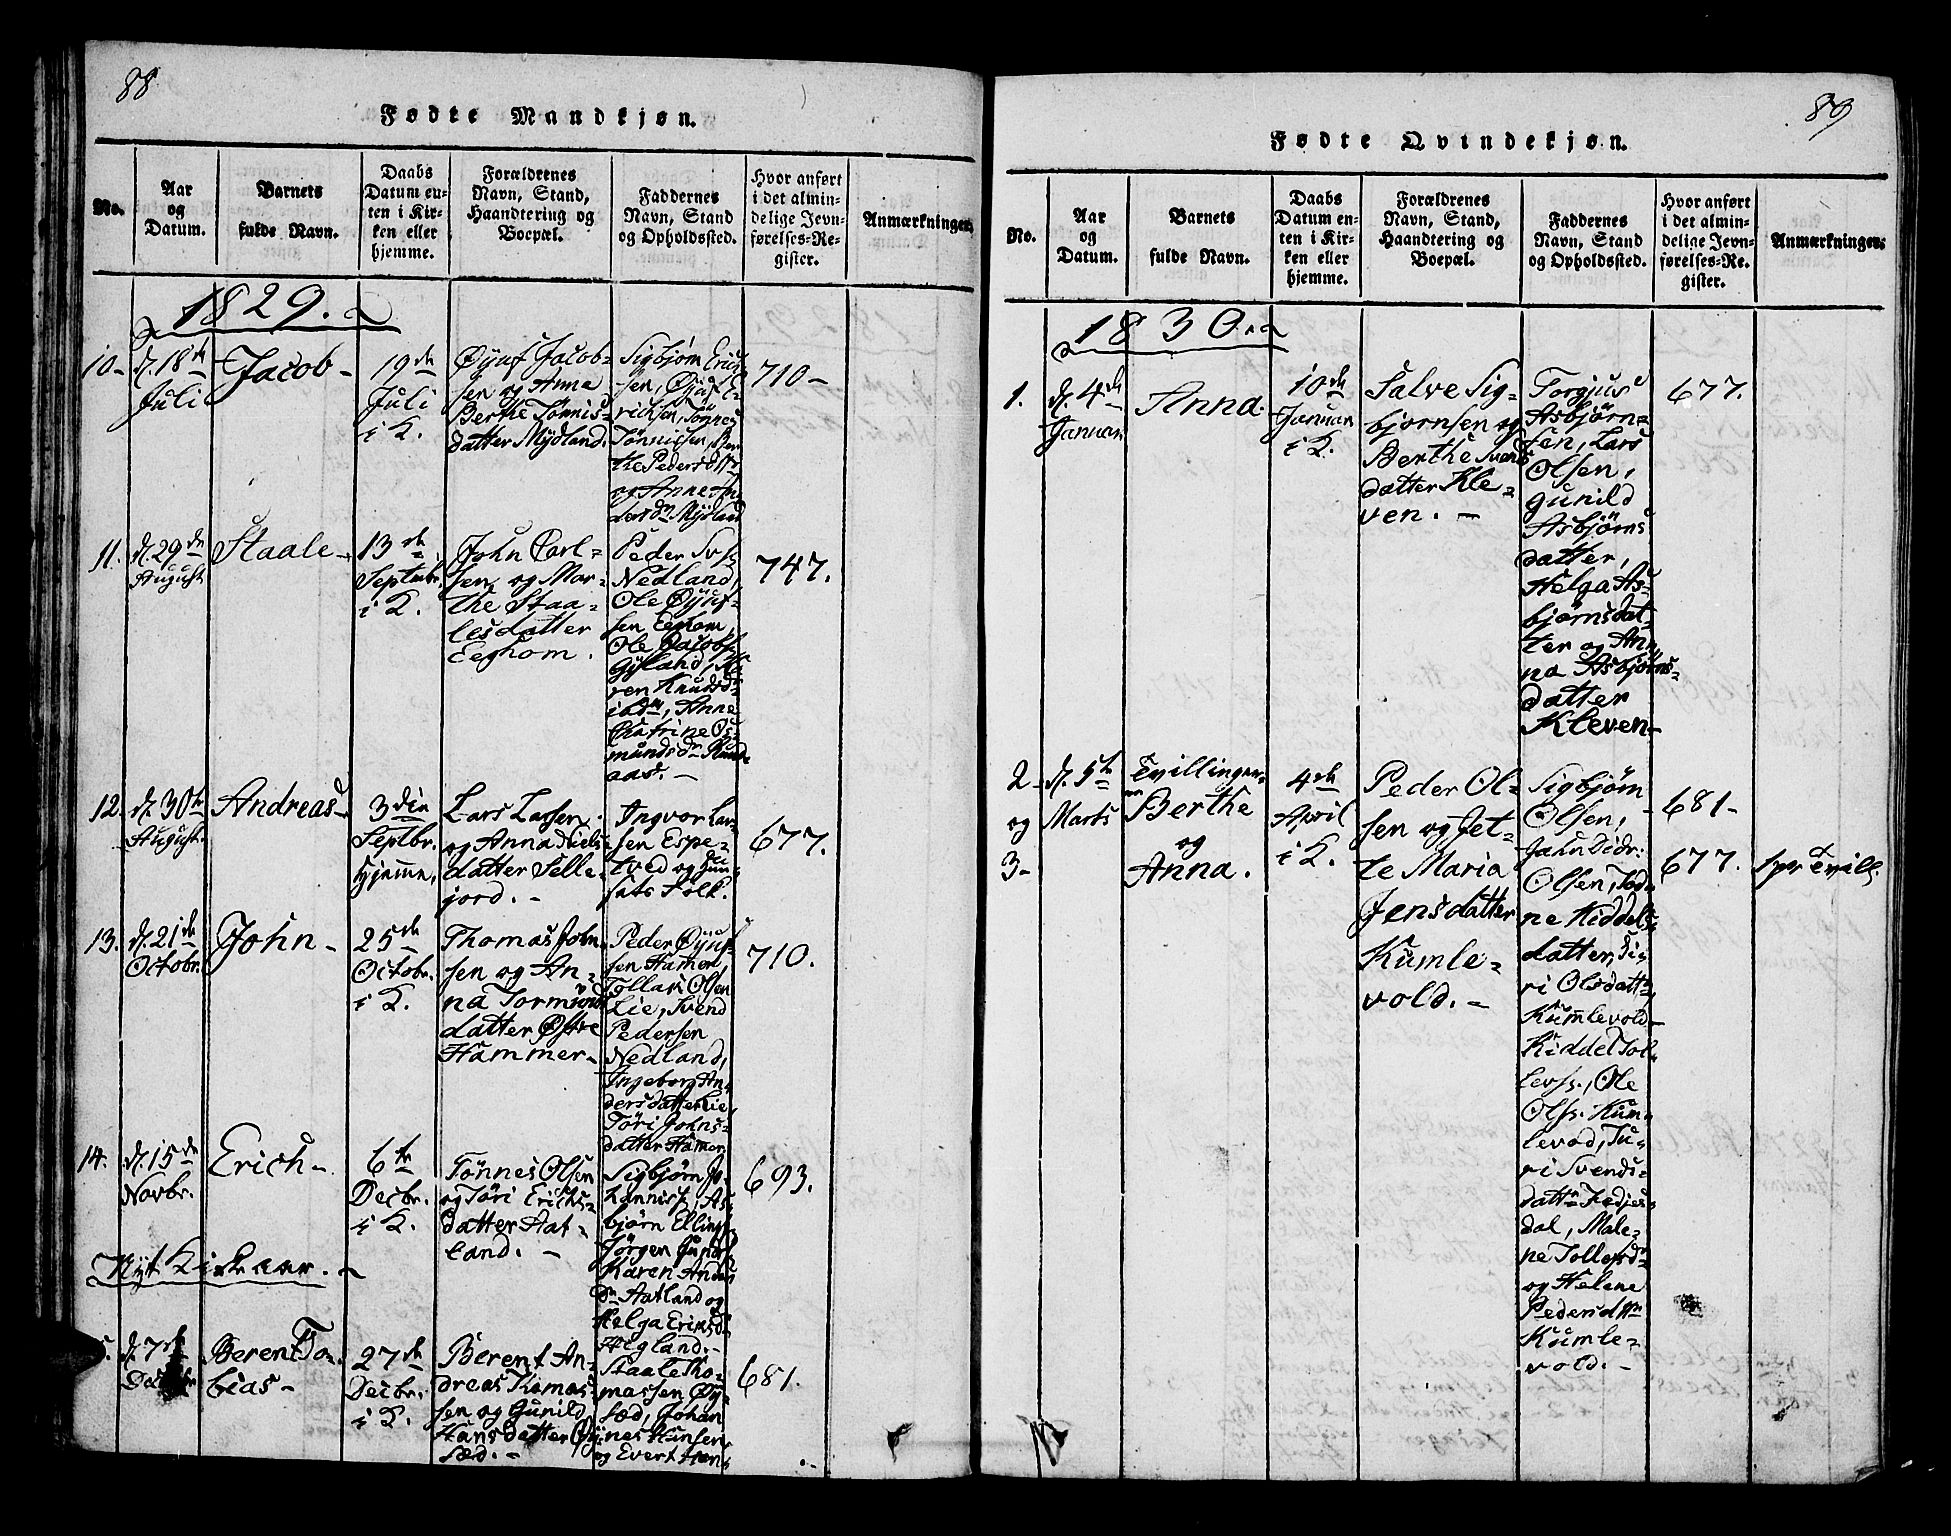 88
Fødte Mandkjøn.
No.
Aar
og
Datum.
Barnets
fulde Navn.
Daabs
Datum en-
ten i Kir-
ken eller
hjemme.
Forældrenes
Navn, Stand,
Haandtering og
Boepæl.
Faddernes
Navn, Stand
og Opholdssted.
Hvor anført
i det almin-
delige Jevn-
førelses-Re-
gister.
Anmærkninger.
1829.
10-
d. 18de
Juli
Jacob-
19de
Juli
i K.
Øyuf Jacob-
sen og Anna
Berthe Tønnis-
datter Mydland.
Sigbjørn Erich-
sen, Øyuf E-
richsen, Tønnes
Tønnissen, Ber-
the Pedersdttr
og Anne An-
dersdr Mydland
710-
11.
d. 29de
August
Staale-
13de
Septembr.
i K.
John Carl-
sen og Mar-
the Staa-
lesdatter
Eeghom.
Peder
Nedland,
Ole Øyuf-
sen Eeghom,
Ole Jacobs.
Gyland,
ren Knudsdr
ibdm, Anne
Catrine Os-
mundsdr
aas.-
747.
12.
d. 30te
August.
Andreas-
3die
Septbr.
hjemme,
Lars Larsen
og Anna Niels-
datter Selle-
jord.-
Ingvor Lar-
sen Espe-
tved og huu-
sets Folk.
677.
13.
d. 21de
Octobr.
John-
25de
Octobr.
i K.
Thomas John-
sen og An-
na Tormunds-
datter Østre
Hammer-
Peder Øyuf-
sen Hamer
Tollak Olsen
Lie, Svend
Pedersen
Nedland,
Ingeborg An-
dersdatter Lie,
Tøri Johns-
datter Hamer
710.
14.
d. 15de
Novbr.
Erich-
6te
Decbr.
i K.
Tønnes Olsen
og Tøri Erichs-
datter Aat-
land.-
Sigbjørn Jo-
hanniss, As-
bjørn Ellings
Jørgen
Karen Anders
dr Aatland og
Helga Eriksd.
Hegland.-
693.
Nyt Kirkeaar.-
d. 7de
Decbr
Berent To-
bias-
27de
Decbr.
i K.
Berent An-
dreas Thomas-
sen og Gunild
Hansdatter Øy-
sæd.-
Staale Tho-
massen Øy-
sæd, Johan-
nes Hansen
og Evert Han-
681.
89
Fødte Qvindekjøn.
No.
Aar
og
Datum.
Barnets
fulde Navn.
Daabs
Datum en-
ten i Kir-
ken eller
hjemme.
Forældrenes
Navn, Stand,
Haandtering og
Boepæl.
Faddernes
Navn, Stand
og Opholdssted.
Hvor anført
i det almin-
delige Jevn-
førelses-Re-
gister.
Anmærkninger.
1830.
1.
d. 4de
Januar
Anna.
10de
Januar
i K.
Salve Sig-
bjørnsen og
Berthe Svends
datter Kle-
ven.-
Torgjus
Asbjørn-
sen, Lars
Olsen,
Gunild
Asbjørns
datter,
Helga As-
bjørnsdat-
ter og An-
na Asbjørns-
datter
Kleven-
677.
2-
og
3-
d. 5te
Marts
Tvillinger-
Berthe
og
Anna.
4de
April
i K.
Peder Ol-
sen og Jet-
te Maria
Jensdatter
Kumle-
vold.-
Sigbjørn
Olsen,
Jahn Didr:
Olsen, Tod-
ne Kiddels-
datter, Si-
ri Olsdattr
Kumlevold-
Kiddel Tol-
levss., Ole
Olss. Kum-
levod, Tu-
ri Svends-
dattr Fedjes-
dal, Male-
ne Tollefsdr
og Helene
Pedersdttr
Kumle-
vold.-
681-
677.